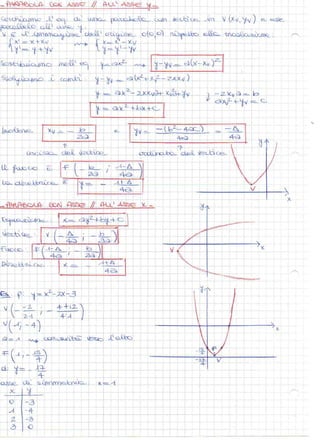 -PARABOLA CON ASSE // ALL'ASSE y-
Scriviamo l'eq. di una parabola con vertice in V(xv, yv) e asse
parallelo all'asse y.
V è l'immagine dell'origine O(0,0) rispetto alla traslazione:
{x' = x+xv → {x = x'-xv
{y' = y+yv {y = y'-yv
Sostituiamo nell'eq. y=ax² → y-yv = a(x-xv)²
Svolgiamo i conti y-yv = a(x²+xv²-2xxv)
y = ax²-2axxv+axv²+yv } -2xva = b
axv²+yv = c
y = ax²+bx+c
Inoltre xv = -b/2a e yv = -(b²-4ac)/4a = -Δ/4a
ascissa del vertice ordinata del vertice
Il fuoco è F(-b/2a ; 1-Δ/4a)
La direttrice è y = -1+Δ/4a
-PARABOLA CON ASSE // ALL'ASSE x-
Equazione: x = ay²+by+c
Vertice: V(-Δ/4a ; -b/2a)
Fuoco: F(1-Δ/4a ; -b/2a)
Direttrice: x = -1+Δ/4a
Es. P: y=x²-2x-3
V(- -2/2·1 ; - 4+12/4·1)
V(1, -4)
a=1 → concavità verso l'alto
F(1, -15/4)
d: y = -17/4
asse di simmetria: x=1
x y
0 -3
1 -4
2 -3
3 0